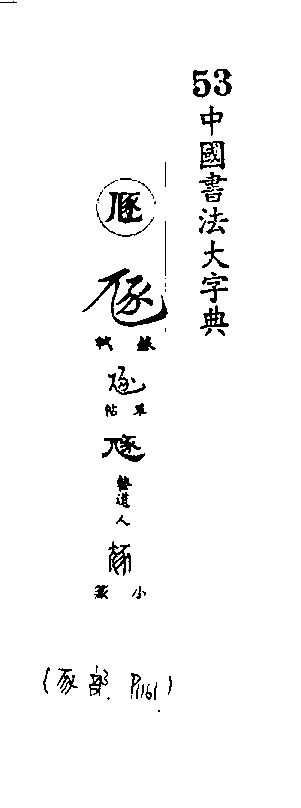 53
中國書法大字典
豗
豗
蘇軾
豗
豗
道人
豗
小篆
(豕部 P1161)